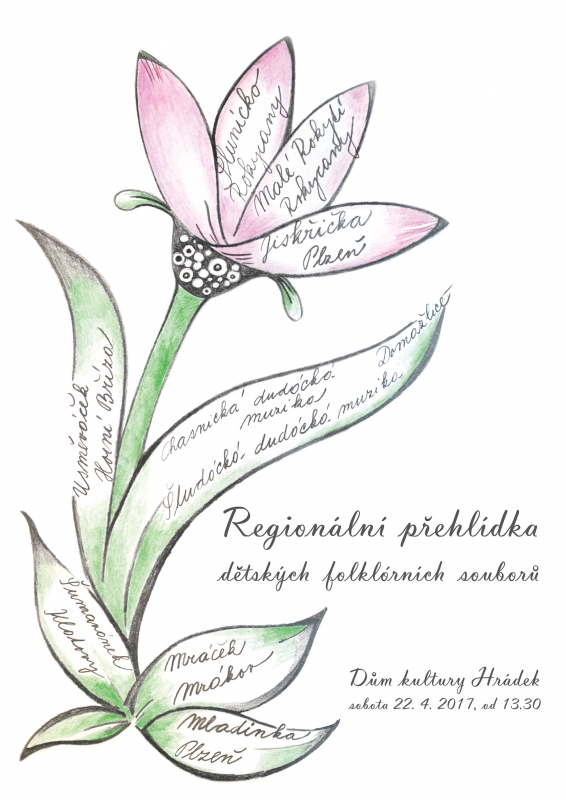 Sluníčko
Rokycany
Malé Rokytí
Rokycany
Jiskřička
Plzeň
Domažlice
Chasnická dudácká
muzika
Študácká dudácká muzika
Usměváček
Horní Bříza
Šumavánek
Klatovy
Mráček
Mrákov
Mladinka
Plzeň
Regionální přehlídka
dětských folklórních souborů
Dům kultury Hrádek
sobota 22. 4. 2017, od 13.30